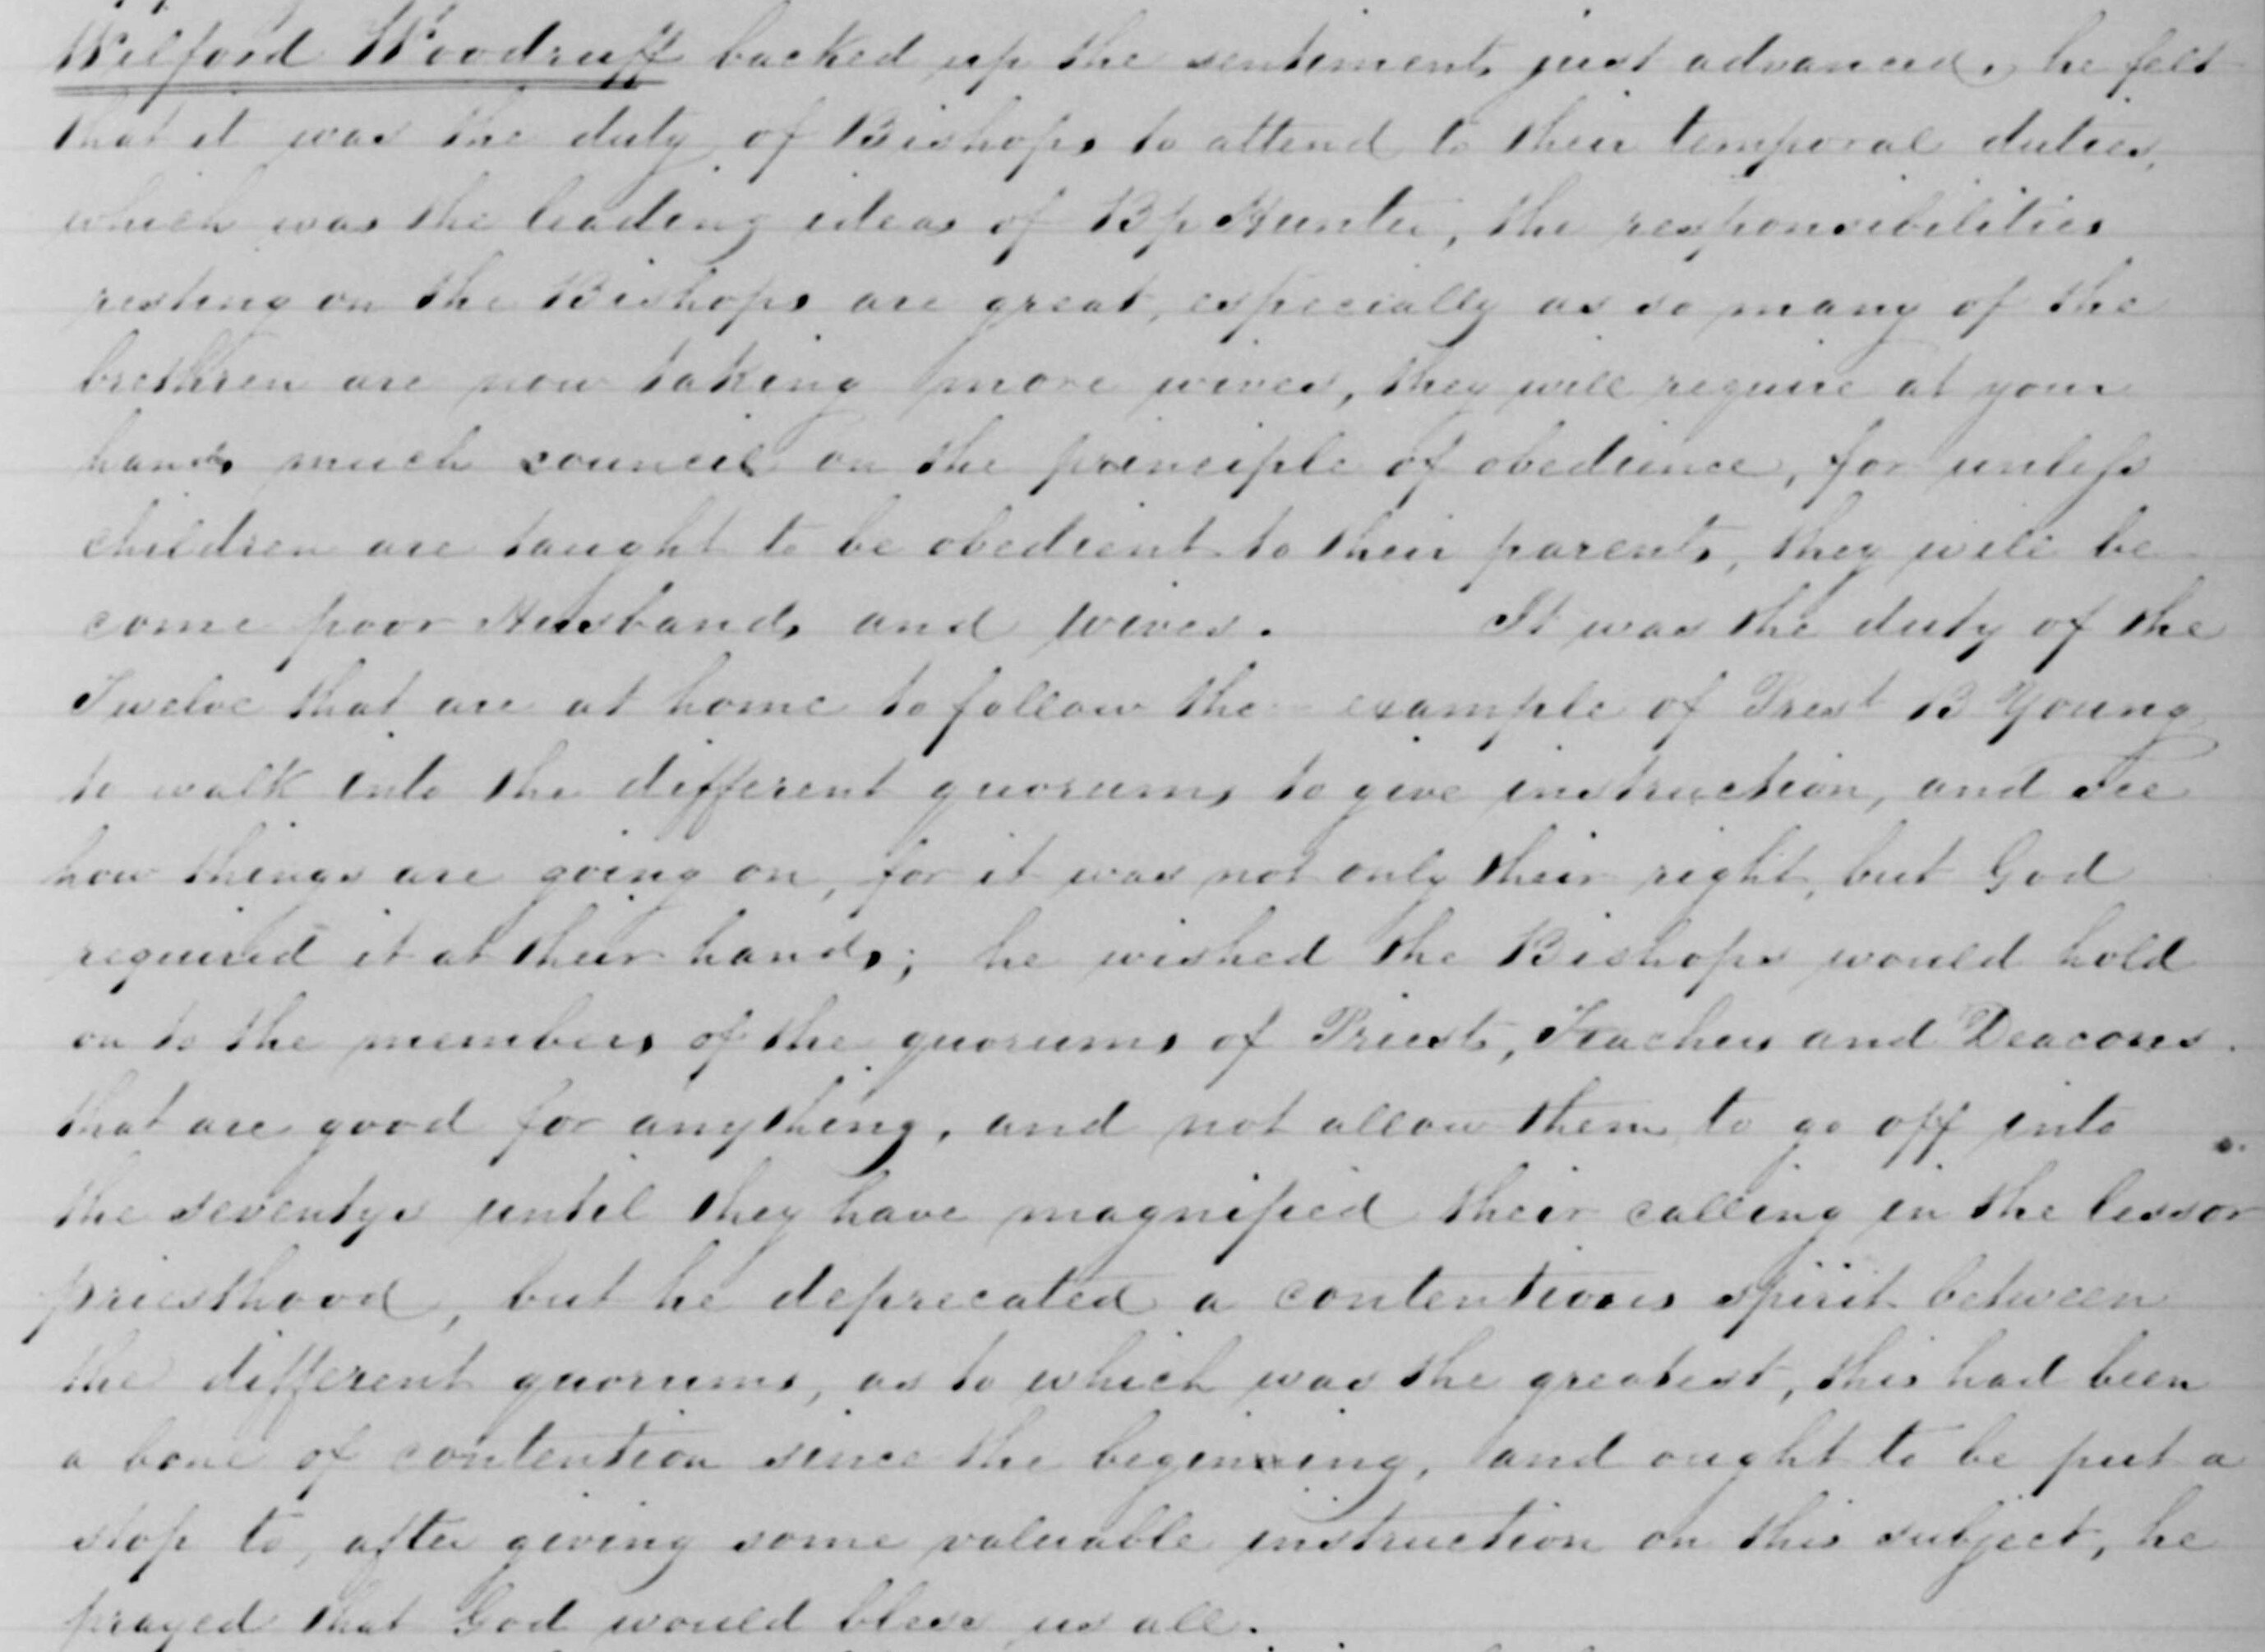 Wilford Woodruff backed up the sentiments just advanced, he felt
that it was the duty of Bishops to attend to their temporal duties,
which was the leading ideas of Bp Hunter, the responsibilities
resting on the Bishops are great, especially as so many of the
brethren are now taking more wives, they will require at your
hands much council on the principle of obedience, for unless
children are taught to be obedient to their parents, they will be
come poor Husbands and wives. It was the duty of the
Twelve that are at home to follow the example of Prest B Young
to walk into the different quorums to give instruction, and see
how things are going on, for it was not only their right, but God
required it at their hands; he wished the Bishops would hold
on to the members of the quorums of Priests, Teachers and Deacons.
that are good for anything, and not allow them to go off into
the seventys until they have magnified their calling in the lessor
priesthood, but he deprecated a contentious spirit between
the different quorums, as to which was the greatest, this had been
a bone of contention since the beginning, and ought to be put a
stop to, after giving some valuable instruction on this subject, he
prayed that God would bless us all.